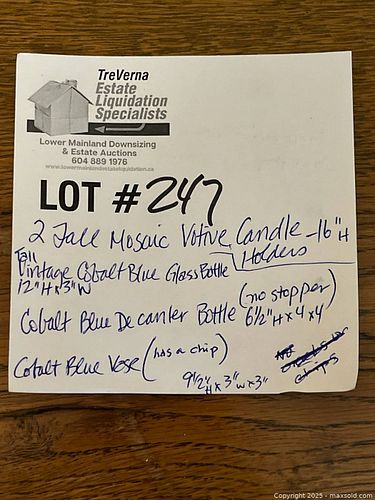 TreVerna
Estate
Liquidation
Specialists
Lower Mainland Downsizing
& Estate Auctions
604 889 1976
www.lowermainlandestateliquidation.ca
LOT # 247
2 Tall Mosaic Votive Candle - 16" H
Holders
Tall
Vintage Cobalt Blue Glass Bottle
12" H x 3" W
Cobalt Blue Decanter Bottle (no stopper)
6 1/2" H x 4 x 4
Cobalt Blue Vase (has a chip)
9 1/2" H x 3" W x 3"
No
chips
Copyright © 2025 - maxsold.com